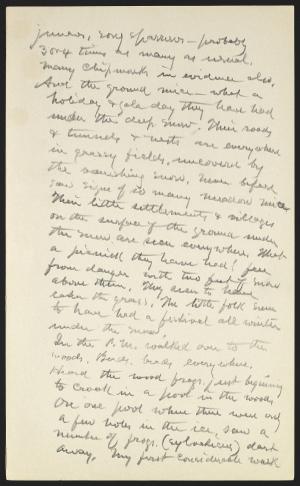 juncos, song sparrows - probably
3 or 4 times as many as usual.
Many chipmunks in evidence also.
And the ground mice - what a
holiday & gala day they have had
under the deep snow. Their roads
& tunnels & nests are everywhere
in grassy fields, uncovered by
the vanishing snow. Never before
saw signs of so many meadow mice
Their little settlements & villages
on the surface of the ground under
the snow are seen everywhere. What
a picnic they have had! free
from danger with two feet of snow
above them. They seem to have
eaten the grass. The little folk seem
to have had a festival all winter
under the snow.
In the P.M. walked over to the
woods. Birds, birds everywhere.
Heard the wood frogs just beginning
to croak in a pool in the woods.
On one pool where there were only
a few holes in the ice, saw a
number of frogs (sylvaticus) dart
away. My first considerable walk